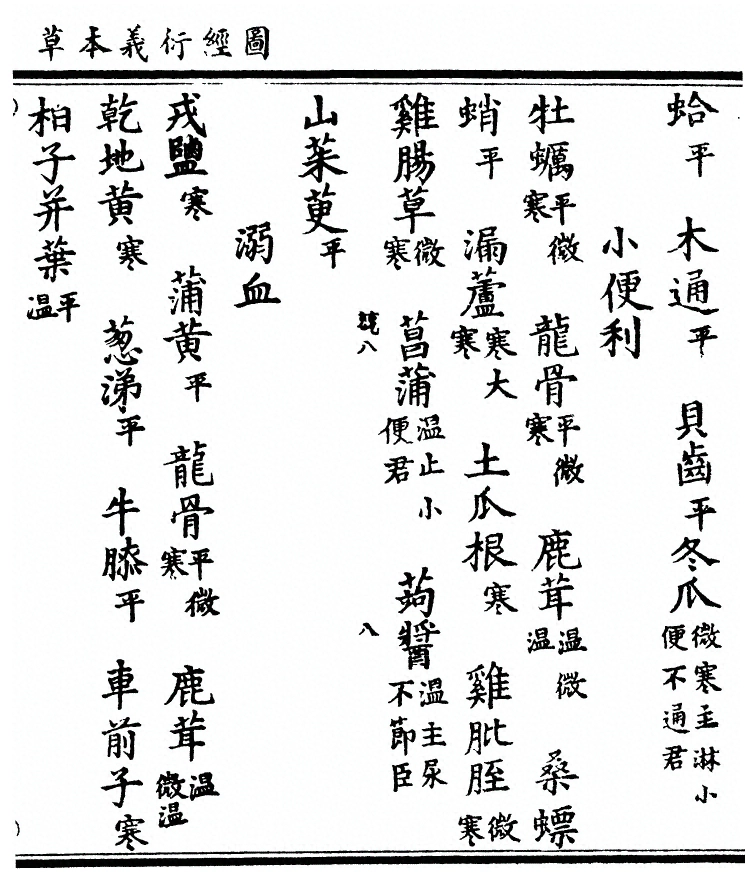 圖經衍義本草
蛤平 木通平 貝齒平 冬瓜微寒主淋小便不通君
小便利
牡蠣平微寒 龍骨平微寒 鹿茸温微温 桑螵
蛸平 漏蘆寒大寒 土瓜根寒 雞肶胵微寒
雞腸草微寒 菖蒲温止小便君 蒟醬温主尿不節臣
八 八
山茱萸平
溺血
戎鹽寒 蒲黃平 龍骨平微寒 鹿茸温微温
乾地黃寒 葱涕平 牛膝平 車前子寒
柏子并葉平温